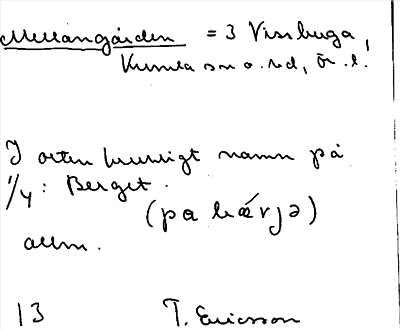 Mellangården = 3 Vissbuga,
Kumla sn o. hd, Ör. l.
I orten brukligt namn på
1/4: Berget.
(pa bǽrjə)
allm.
13 T. Ericsson